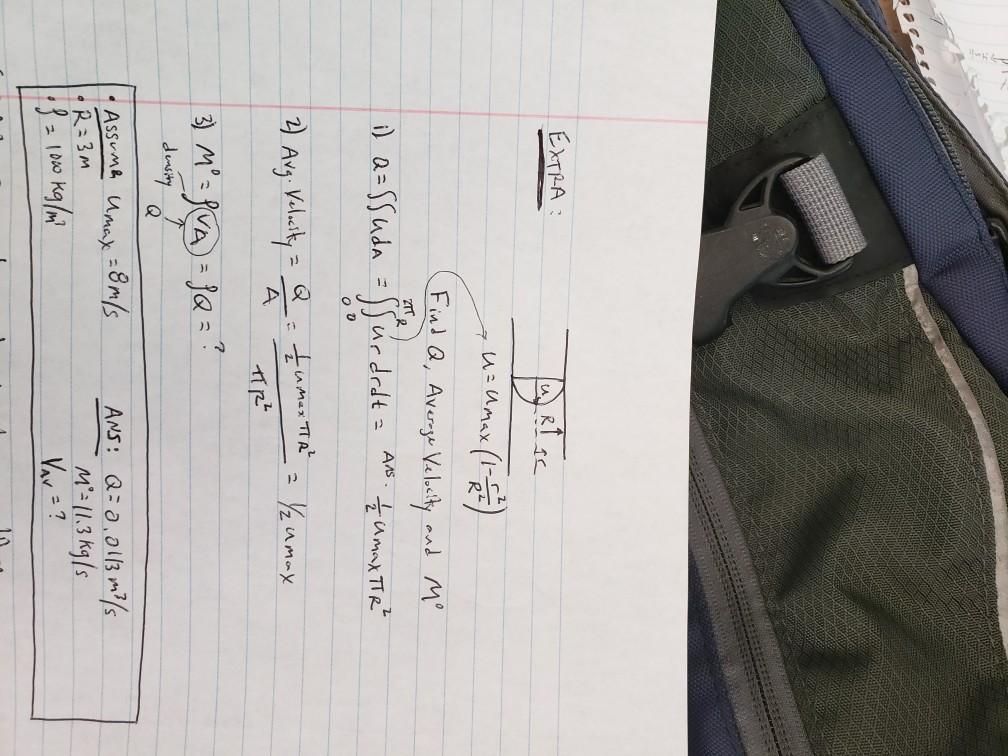 EXTRA:
u
R
r
u = umax (1 - r²/R²)
Find Q, Average Velocity and M°
1) Q = ∫∫ u dA = ∫₀^2π ∫₀^R u r dr dt = ANS. ½ umax πR²
2) Avg. Velocity = Q/A = ½ umax πR² / πR² = 1/2 umax
3) M° = ρ VA = ρQ = ?
density
Q
• Assume umax = 8 m/s
• R = 3 m
• ρ = 1000 kg/m³
ANS: Q = 0.0113 m³/s
M° = 11.3 kg/s
VAV = ?